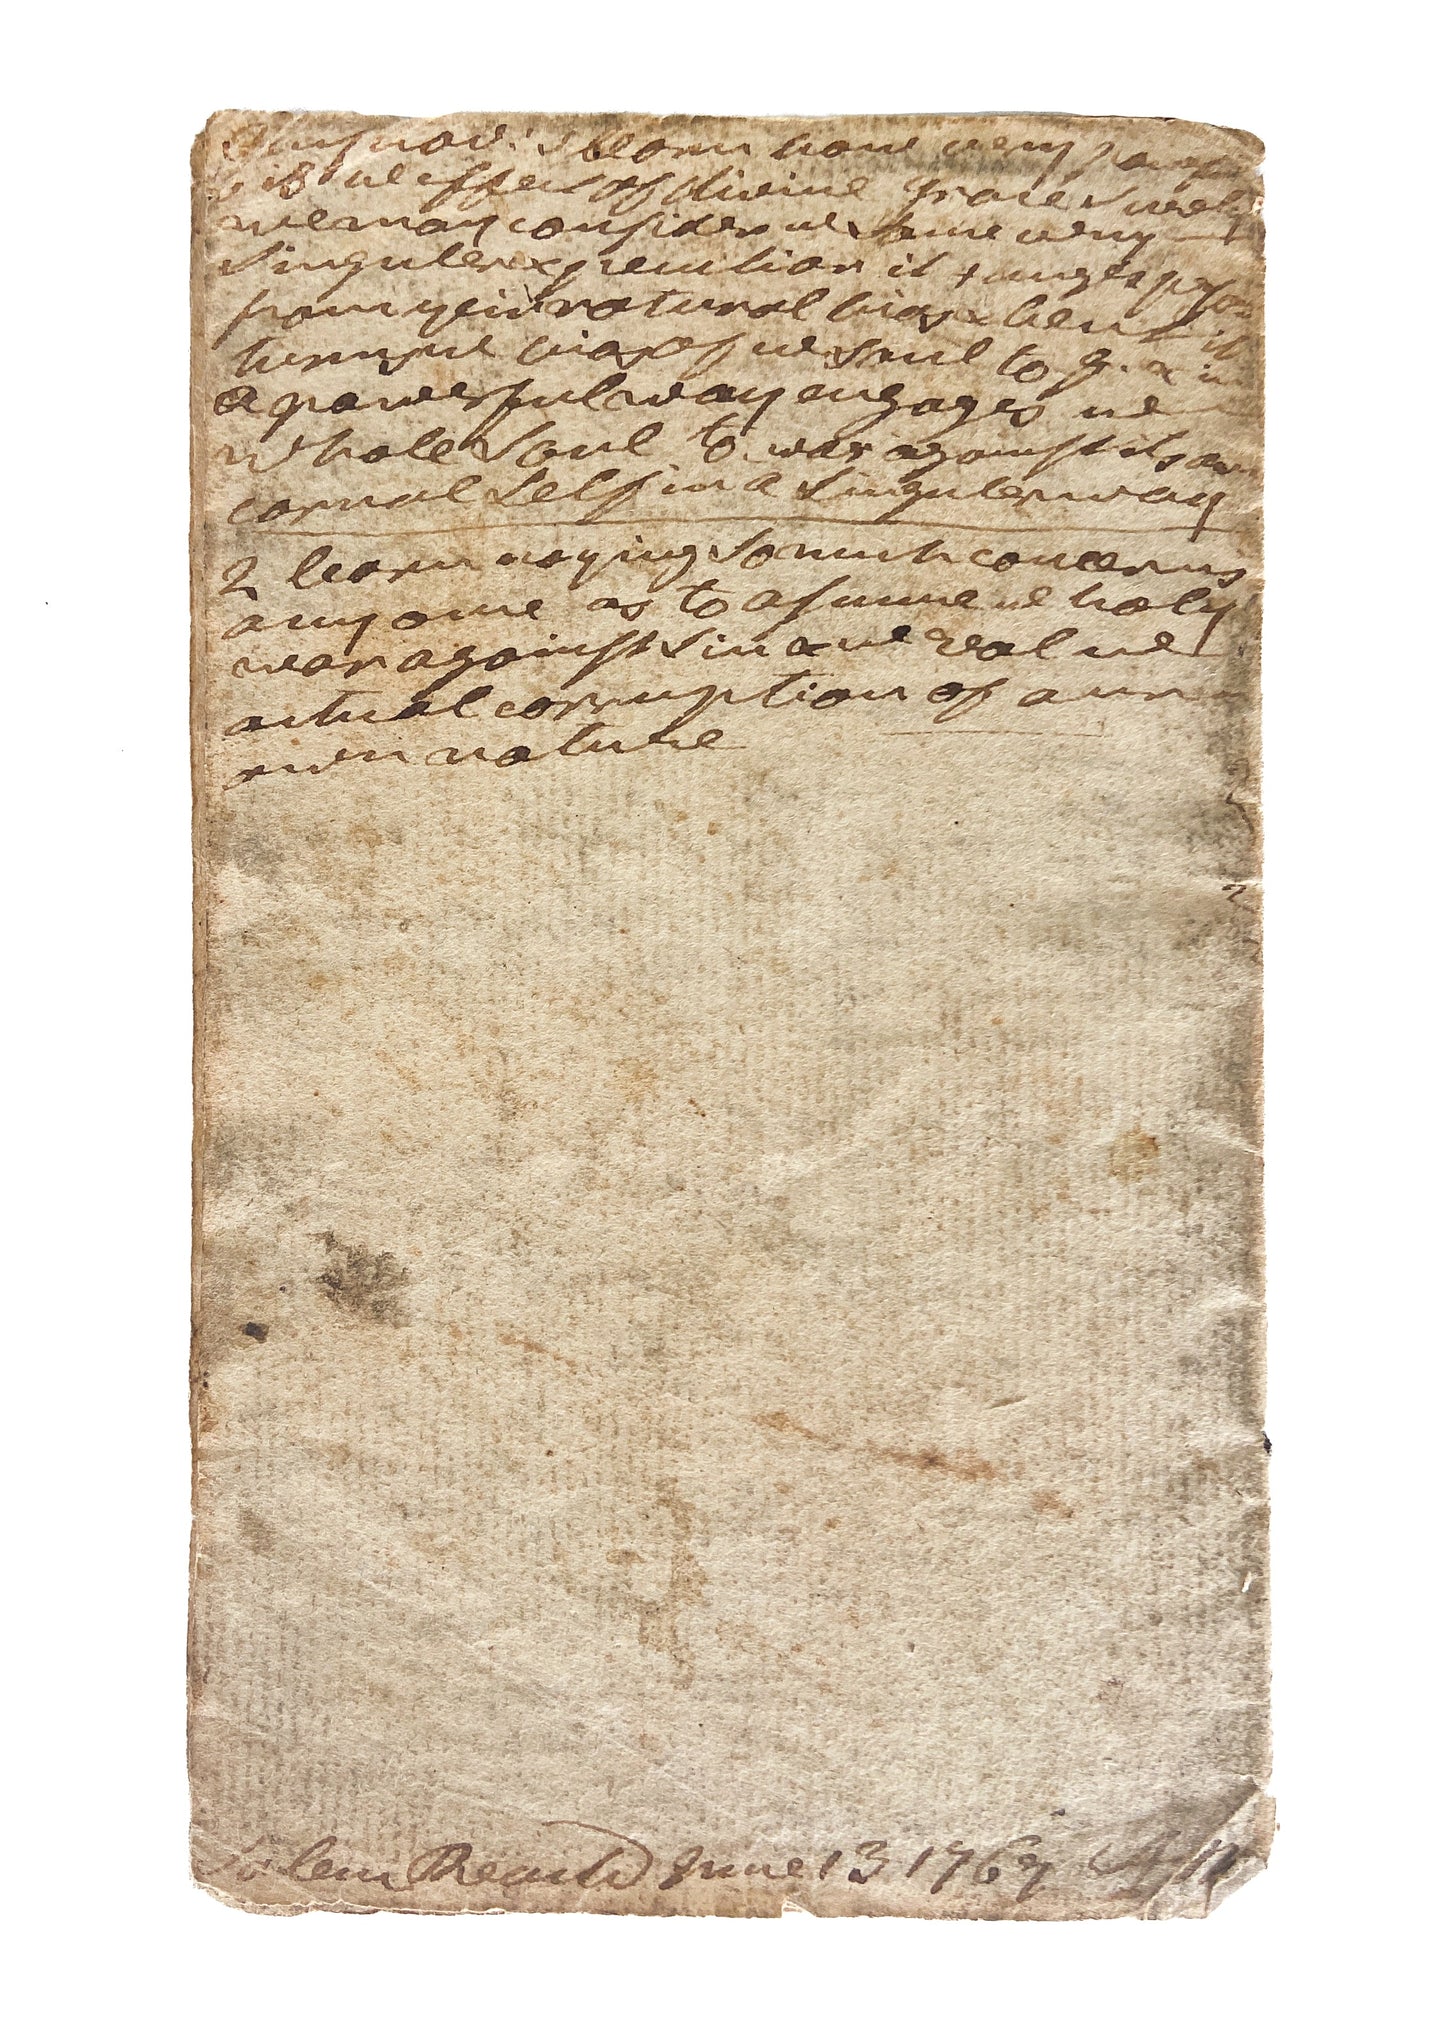 Improv: 1 learn how very pow
is ye effect of divine Grace & well
we may consider ye same very
Singuler expression it
from yeir natural bias & bent it
turns ye bias of ye Soul to G. & in
a powerful way engages ye
whole Soul to war against its own
carnal Self in a Singuler way
2 learn noying So much concerns
any one as to asume ye holy
war against Sin & ye real ye
actual corruption of our
own nature
Salem June 13 1767